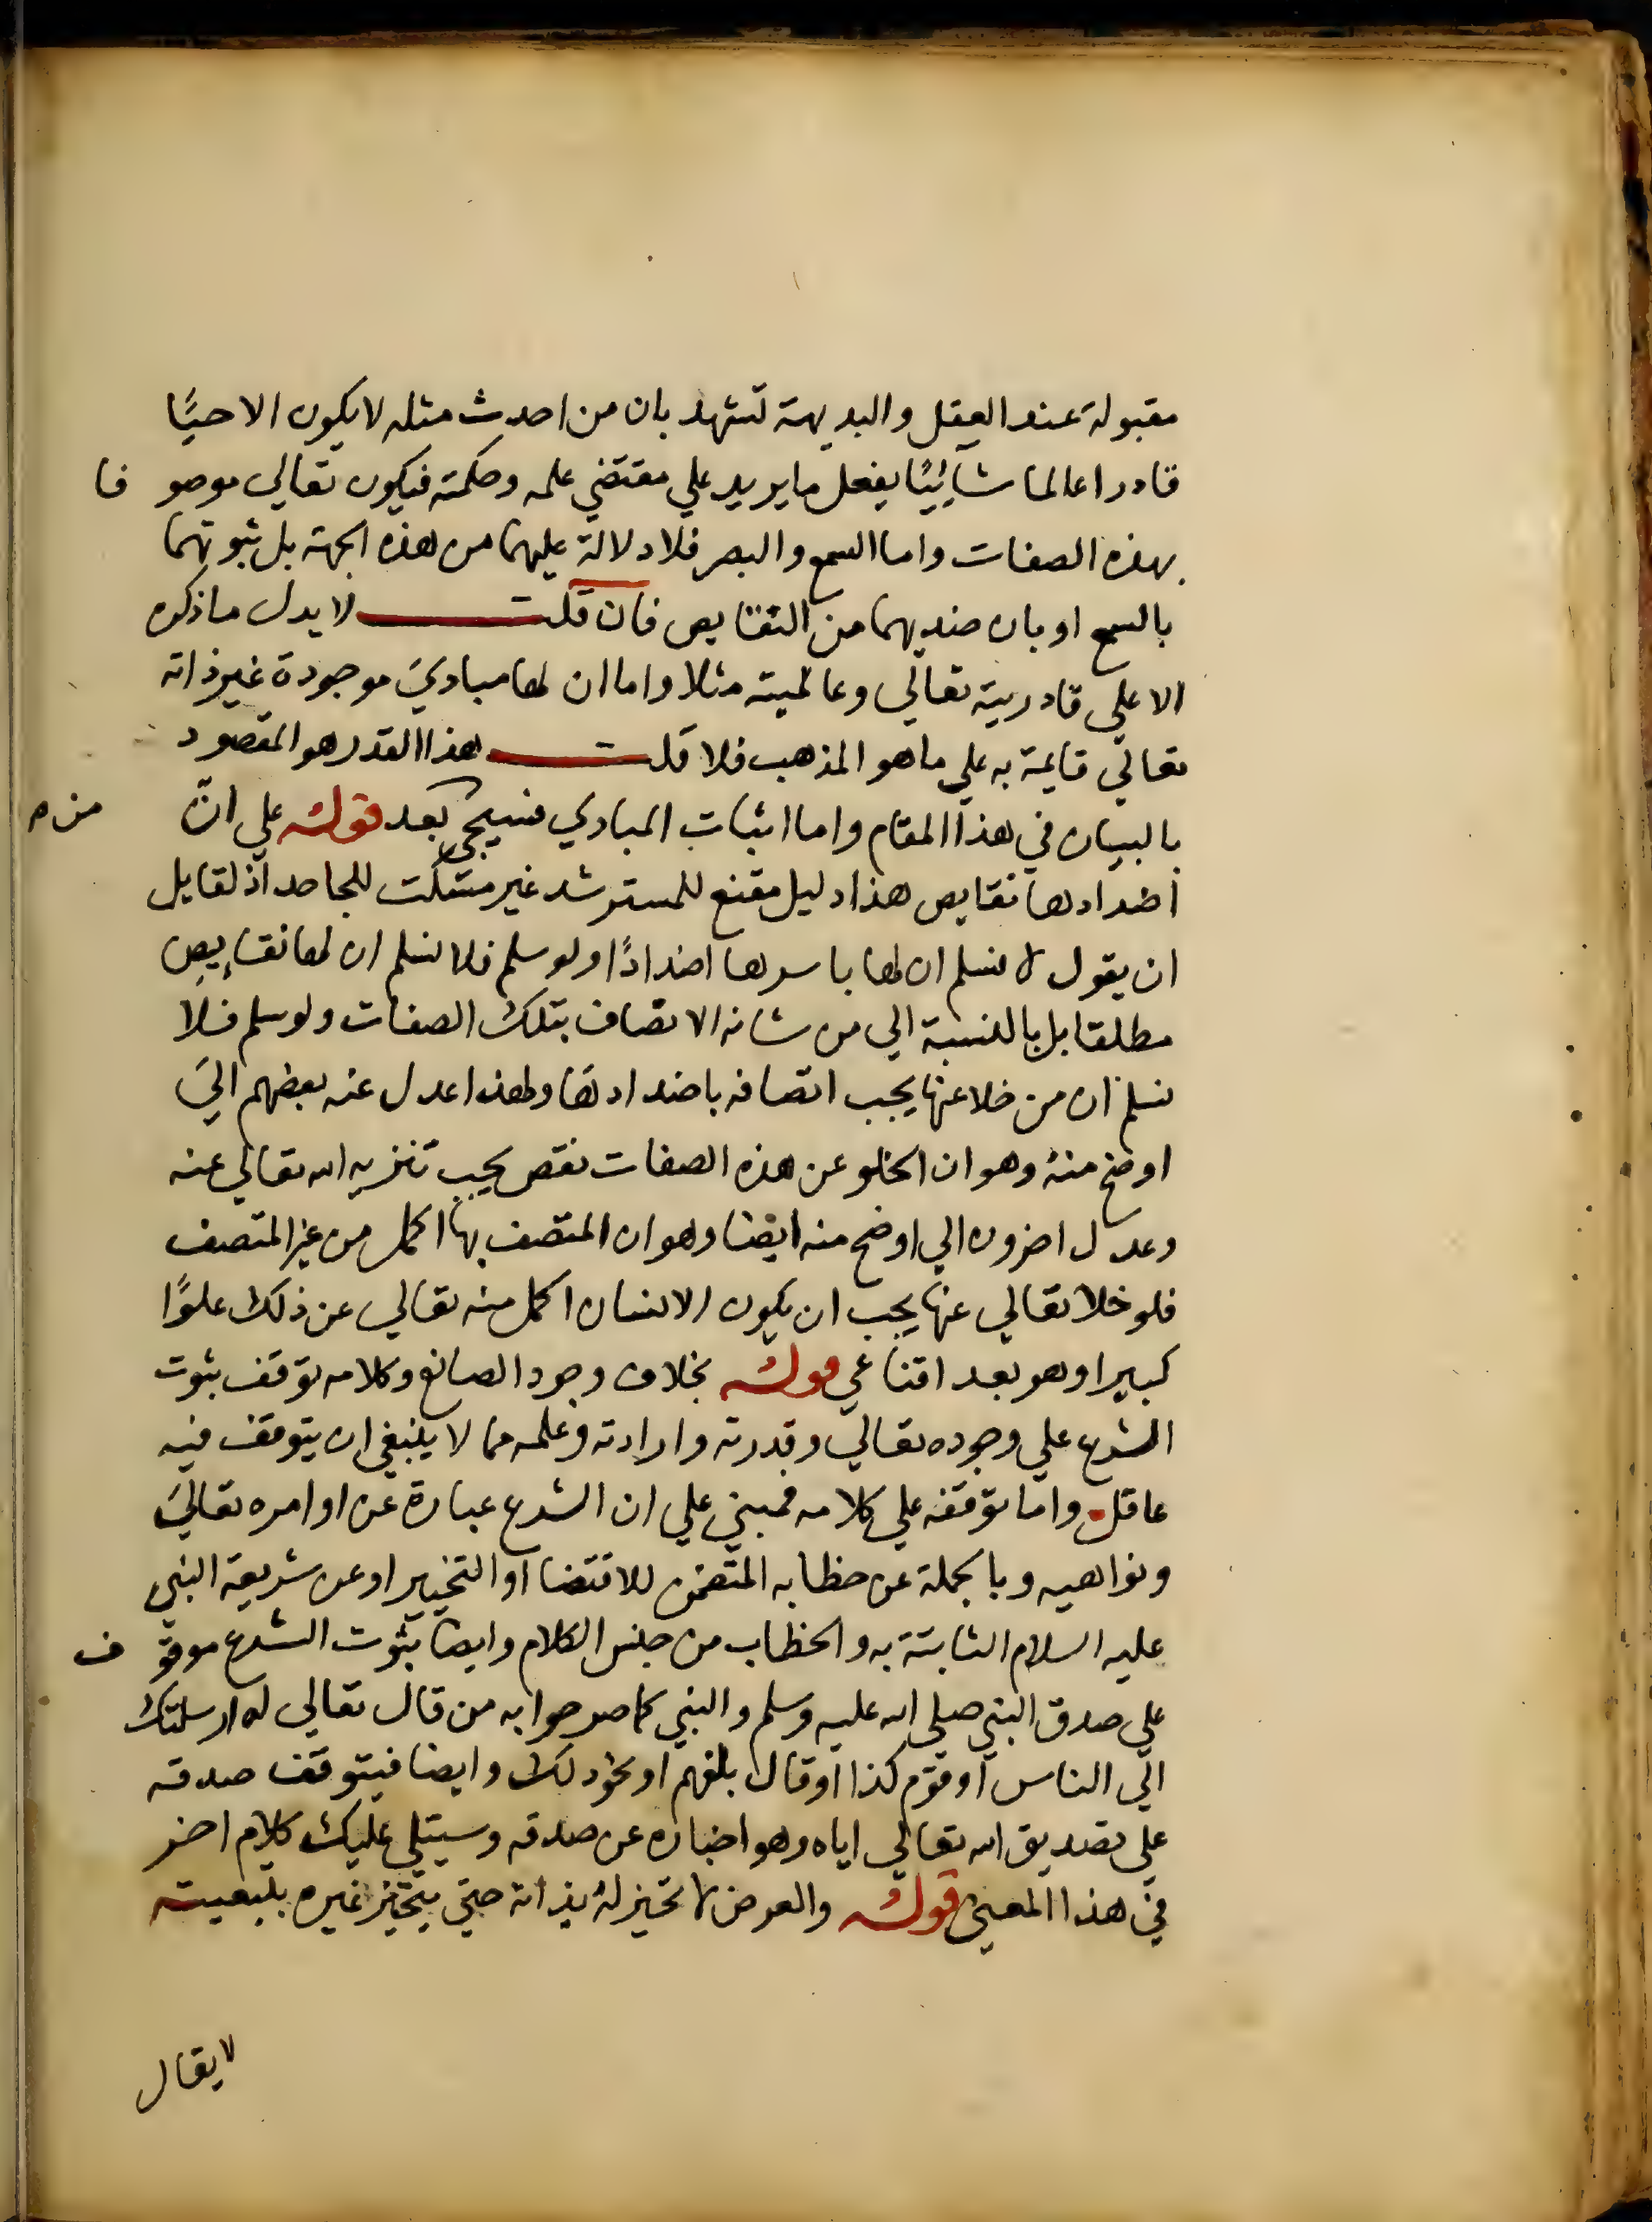 مقبولة عند العقل والبديهة تشهد بان من احدث مثله لا يكون الا حيًّا
قادرا عالما شائيًا يفعل ما يريد علي مقتضي علمه وحكمته فيكون تعالي موصوفا
بهذه الصفات واما السمع والبصر فلا دلالة عليهما من هذه الجهة بل ثبوتهما
بالسمع او بان ضديهما من النقايص فان قلت لا يدل ما ذكره
الا علي قادرية تعالي وعالميته مثلا واما ان لها مبادي موجودة غير ذاته
تعالي قايمة به علي ما هو المذهب فلا قلت هذا القدر هو المقصود
بالبيان في هذا المقام واما اثبات المبادي فسيجئ بعد قوله علي انّ
اضدادها نقايص هذا دليل مقنع للمسترشد غير مسكت للجاحد اذ لقايل
ان يقول لا نسلم ان لها باسرها اضدادًا ولو سلم فلا نسلم ان لها نقايص
مطلقا بل بالنسبة الي من شانه الاتصاف بتلك الصفات ولو سلم فلا
نسلم ان من خلا عنها يجب اتصافه باضدادها ولهذا عدل عنه بعضهم الي
اوضح منه وهو ان الخلو عن هذه الصفات نقص يجب تنزيه الله تعالي عنه
وعدل اخرون الي اوضح منه ايضا وهو ان المتصف بها اكمل من غير المتصف
فلو خلا تعالي عنها يجب ان يكون الانسان اكمل منه تعالي عن ذلك علوًا
كبيرا وهو بعد اقناعي قوله بخلاف وجود الصانع وكلامه توقف ثبوت
الشرع علي وجوده تعالي وقدرته وارادته وعلمه مما لا ينبغي ان يتوقف فيه
عاقل واما توقفه علي كلامه فمبني علي ان الشرع عبارة عن اوامره تعالي
ونواهيه وبالجملة عن خطابه المتضمن للاقتضا او التخيير او عن شريعة النبي
عليه السلام الثابتة به والخطاب من جنس الكلام وايضا ثبوت الشرع موقوف
علي صدق النبي صلي الله عليه وسلم والنبي كما صرحوا به من قال تعالي له ارسلتك
الي الناس او قوم كذا او قال بلغهم او نحو ذلك وايضا فيتوقف صدقه
علي تصديق الله تعالي اياه وهو اخباره عن صدقه وسيتلي عليك كلام اخر
في هذا المعني قوله والعرض لا تحيز له بذاته حتي يتحيز غيره بتبعيته
لا يقال